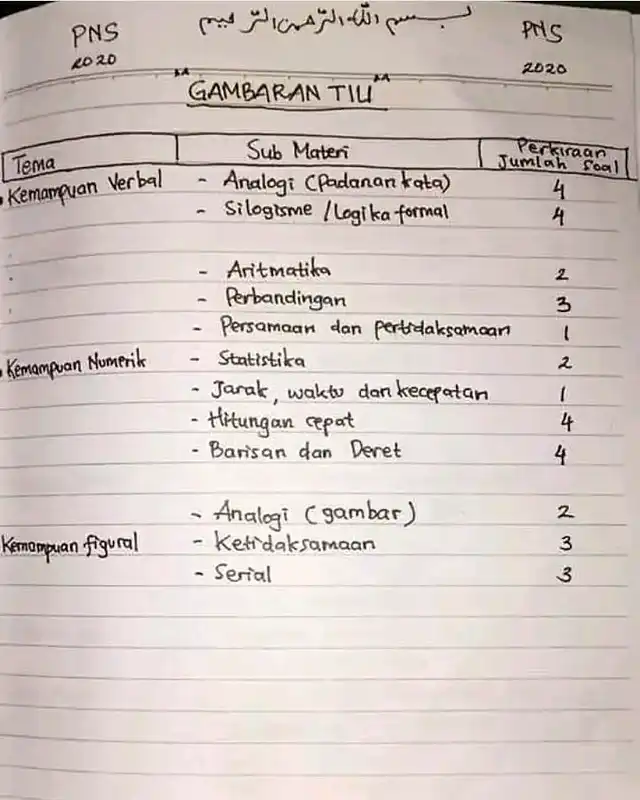 PNS بسم الله الرحمن الرحيم PNS
2020 2020
"GAMBARAN TIU"
Tema Sub Materi Perkiraan Jumlah Soal
Kemampuan Verbal - Analogi (Padanan kata) 4
- Silogisme / logika formal 4
- Aritmatika 2
- Perbandingan 3
- Persamaan dan pertidaksamaan 1
Kemampuan Numerik - Statistika 2
- Jarak, waktu dan kecepatan 1
- Hitungan cepat 4
- Barisan dan Deret 4
- Analogi (gambar) 2
Kemampuan figural - Ketidaksamaan 3
- Serial 3